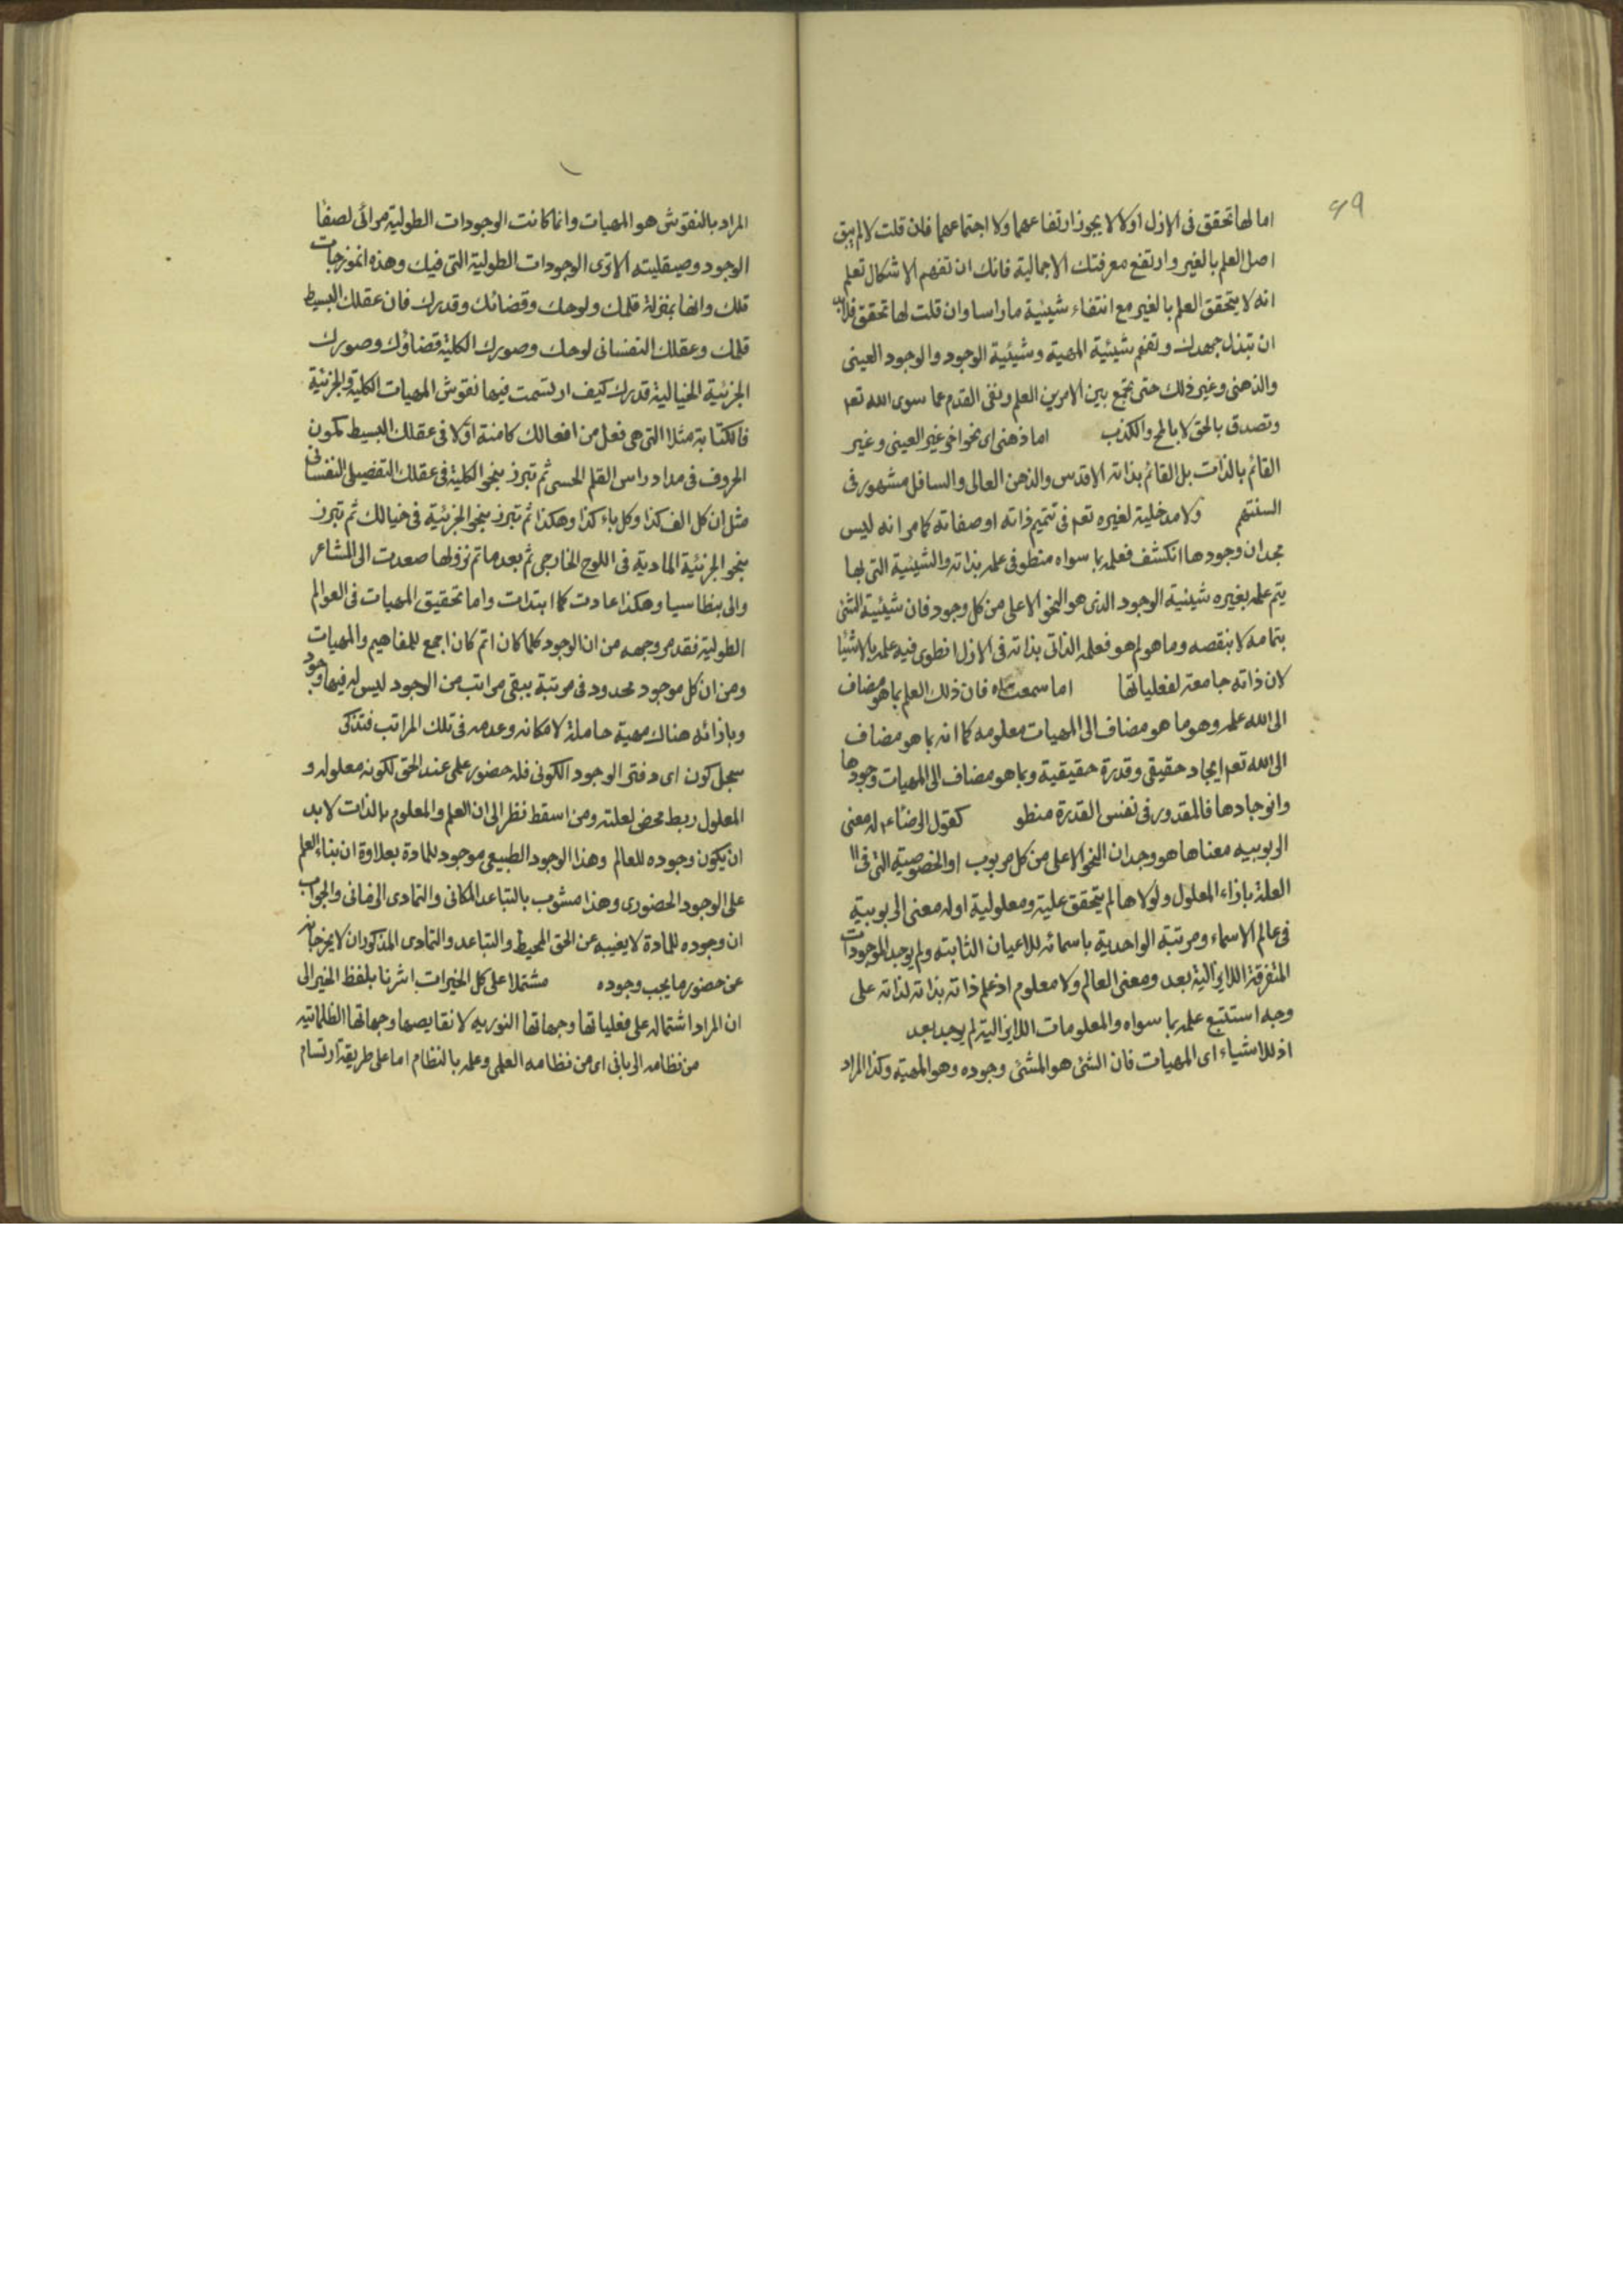 ٩٩
اما لها تحقق فى الازل او لا لا يجوز ارتفاعهما ولا اجتماعهما فان قلت لا لم يبق
اصل العلم بالغير وارتفع معرفتك الاجمالية فانك ان تفهم الاشكال تعلم
انه لا يتحقق العلم بالغير مع انتفاء شيئية ما راسا وان قلت لها تحقق فلا بد
ان تبذل جهدك وتفهم شيئية المهية وشيئية الوجود والوجود العينى
والذهنى وغير ذلك حتى تجمع بين الامرين العلم ونفى القدم عما سوى الله تعم
وتصدق بالحق لا بالمح والكذب اما ذهنى اى نحو اخر غير العينى وغير
القائم بالذات بل القائم بذاته الاقدس والذهن العالى والسافل مشهور فى
السنتهم ولا مدخلية لغيره تعم فى تتميم ذاته او صفاته كما مر انه ليس
بجدان وجودها انكشف فعلمه بما سواه منطو فى علمه بذاته والشيئية التى بها
يتم علمه بغيره شيئية الوجود الذى هو النحو الاعلى من كل وجود فان شيئية الشئ
بتمامه لا بنقصه وما هو لم هو فعلمه الذاتى بذاته فى الازل انطوى فيه علمه بالاشيا
لان ذاته جامعة لفعلياتها اما سمعت فان ذلك العلم بما هو مضاف
الى الله علمه وهو ما هو مضاف الى المهيات معلومه كما انه بما هو مضاف
الى الله تعم ايجاد حقيقى وقدرة حقيقية وبما هو مضاف الى المهيات وجودها
وانوجادها فالمقدور فى نفس القدرة منطو كقول الرضاء له معنى
الربوبيه معناها هو وجدان النحو الاعلى من كل مربوب او الخصوصية التى فى
العلة بازاء المعلول ولولاها لم يتحقق علية ومعلولية او له معنى الربوبية
فى عالم الاسماء ومرتبة الواحدية باسمائه للاعيان الثابتة ولم يوجد الموجودات
المتفرقة اللايزالية بعد ومعنى العالم ولا معلوم اذ علم ذاته بذاته لذاته على
وجه استتبع علمه بما سواه والمعلومات اللايزالية لم يوجد بعد
اذ للاشياء اى المهيات فان الشئ هو المشئ وجوده وهو المهية وكذا المراد
المراد بالنقوش هو المهيات وانما كانت الوجودات الطولية مرائى لصفا
الوجود وصيقليته الا ترى الوجودات الطولية التى فيك وهذه انموزجات
تلك وانها بمنزلة قلمك ولوحك وقضائك وقدرك فان عقلك البسيط
قلمك وعقلك النفسانى لوحك وصورك الكلية قضاؤك وصورك
الجزئية الخيالية قدرك كيف ارتسمت فيها نقوش المهيات الكلية والجزئية
فالكتابة مثلا التى هى فعل من افعالك كامنة اولا فى عقلك البسيط كمون
الحروف فى مداد راس القلم الحسى ثم تبرز بنحو الكلية فى عقلك التفصيلى النفسانى
مثل ان كل الف كذا وكل باء كذا وهكذا ثم تبرز بنحو الجزئية فى خيالك ثم تبرز
بنحو الجزئية المادية فى اللوح الخارجى ثم بعد ما تم نزولها صعدت الى المشاعر
والى بنطاسيا وهكذا عادت كما ابتدات واما تحقيق المهيات فى العوالم
الطولية فقد مر وجهه من ان الوجود كلما كان اتم كان اجمع للمفاهيم والمهيات
ومن ان كل موجود محدود فى مرتبة يبقى مراتب من الوجود ليس له فيها وجود
وبازائه هناك مهية حاملة لامكانه وعدمه فى تلك المراتب فتذكر
سجل كون اى دفتر الوجود الكونى فله حضور علمى عند الحق لكونه معلوله و
المعلول ربط محض لعلته ومن اسقط نظر الى ان العلم والمعلوم بالذات لا بد
ان يكون وجوده للعالم وهذا الوجود الطبيعى موجود للمادة بعلاوة ان بناء العلم
على الوجود الحضورى وهذا مشوب بالتباعد المكانى والتمادى الزمانى والجواب
ان وجوده للمادة لا يغيبه عن الحق المحيط والتباعد والتمادى المذكوران لا يخرجانه
عن حضور ما يجب وجوده مشتملا على كل الخيرات اشرنا بلفظ الخير الى
ان المراد اشتماله على فعلياتها وجهاتها النوريه لا نقايصها وجهاتها الظلمانية
من نظامه الربانى اى من نظامه العلمى وعلمه بالنظام اما على طريقة ارتسام